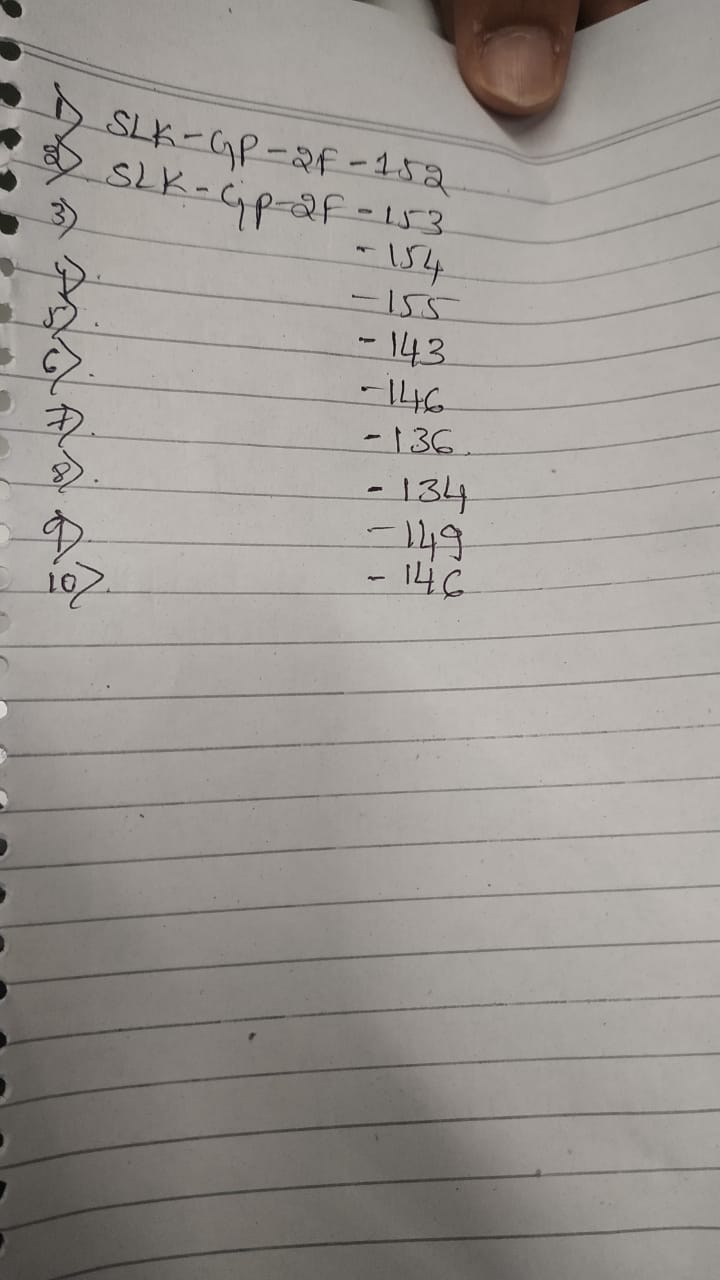 1) SLK-GP-2F-152
2) SLK-GP-2F-153
3) -154
4). -155
5). -143
6). -146
7). -136.
8). -134
9) -149
10). -146